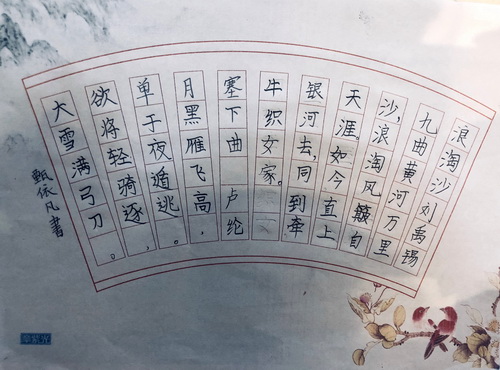 浪淘沙刘禹锡
九曲黄河万里
沙,浪淘风簸自
天涯。如今直上
银河去,同到牵
牛织女家。
塞下曲 卢纶
月黑雁飞高,
单于夜遁逃。
欲将轻骑逐,
大雪满弓刀。
甄依凡书